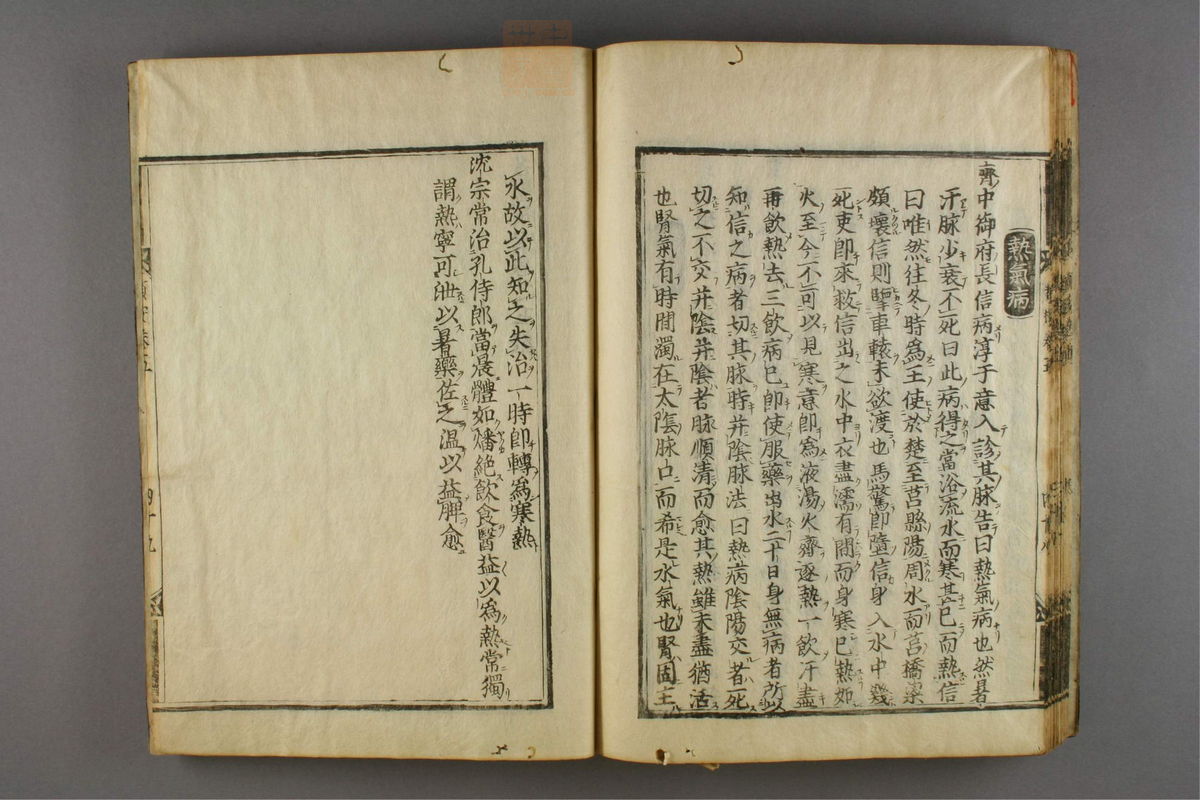 熱氣病
齊中御府長信病淳于意入診其脉告曰熱氣病也然暑
汗脉少衰不死曰此病得之當浴流水而寒甚已而熱信
曰唯然往冬時為王使於楚至莒縣陽周水而莒橋梁
頗壞信則擥車轅未欲渡也馬驚即墮信身入水中幾
死吏即來救信出之水中衣盡濡有間而身寒已熱如
火至今不可以見寒意即為液湯火齊逐熱一飲汗盡
再飲熱去三飲病已即使服藥出水二十日身無病者所以
知信之病者切其脉時并陰脉法曰熱病陰陽交者死
切之不交并陰并陰者脉順清而愈其熱雖未盡猶活
也腎氣有時間濁在太陰脉口而希是水氣也腎固主
水故以此知之失治一時即轉為寒熱
沈宗常治孔侍郎當晨體如燔絕飲食醫益以為熱常獨
謂熱寧可泄以暑藥佐之温以益脾愈
四十九